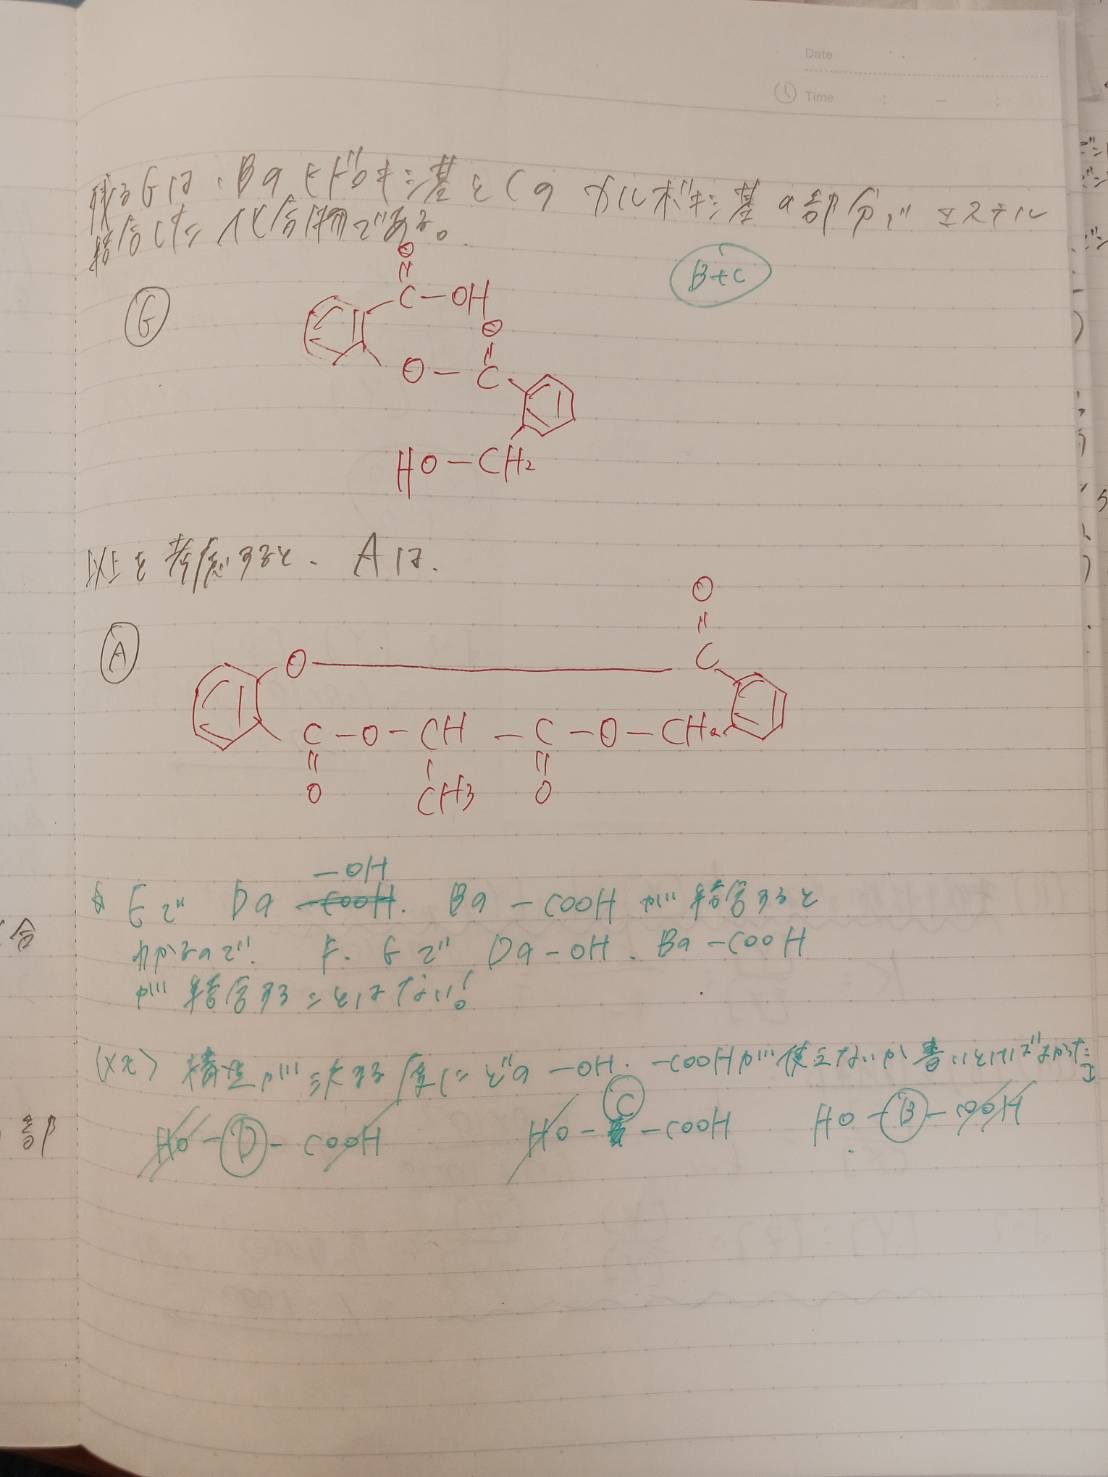 Date
Time : - :
残るGは、Bのヒドロキシ基とCのカルボキシ基の部分がエステル
結合した化合物である。
B+C
G
O
C-OH
O
O-C
HO-CH2
以上を考慮すると、Aは、
A
O
O C
C-O-CH-C-O-CH2
O CH3 O
-OH
☆ Eで Dの -COOH. Bの -COOH が結合すると
わかるので! F. Gで Dの-OH. Bの-COOH
が結合することはない!
(メモ) 構造が決まる度にどの -OH. -COOHが使えないか書いとけばよかった
C
HO-D-COOH HO- -COOH HO-B-COOH
合
部